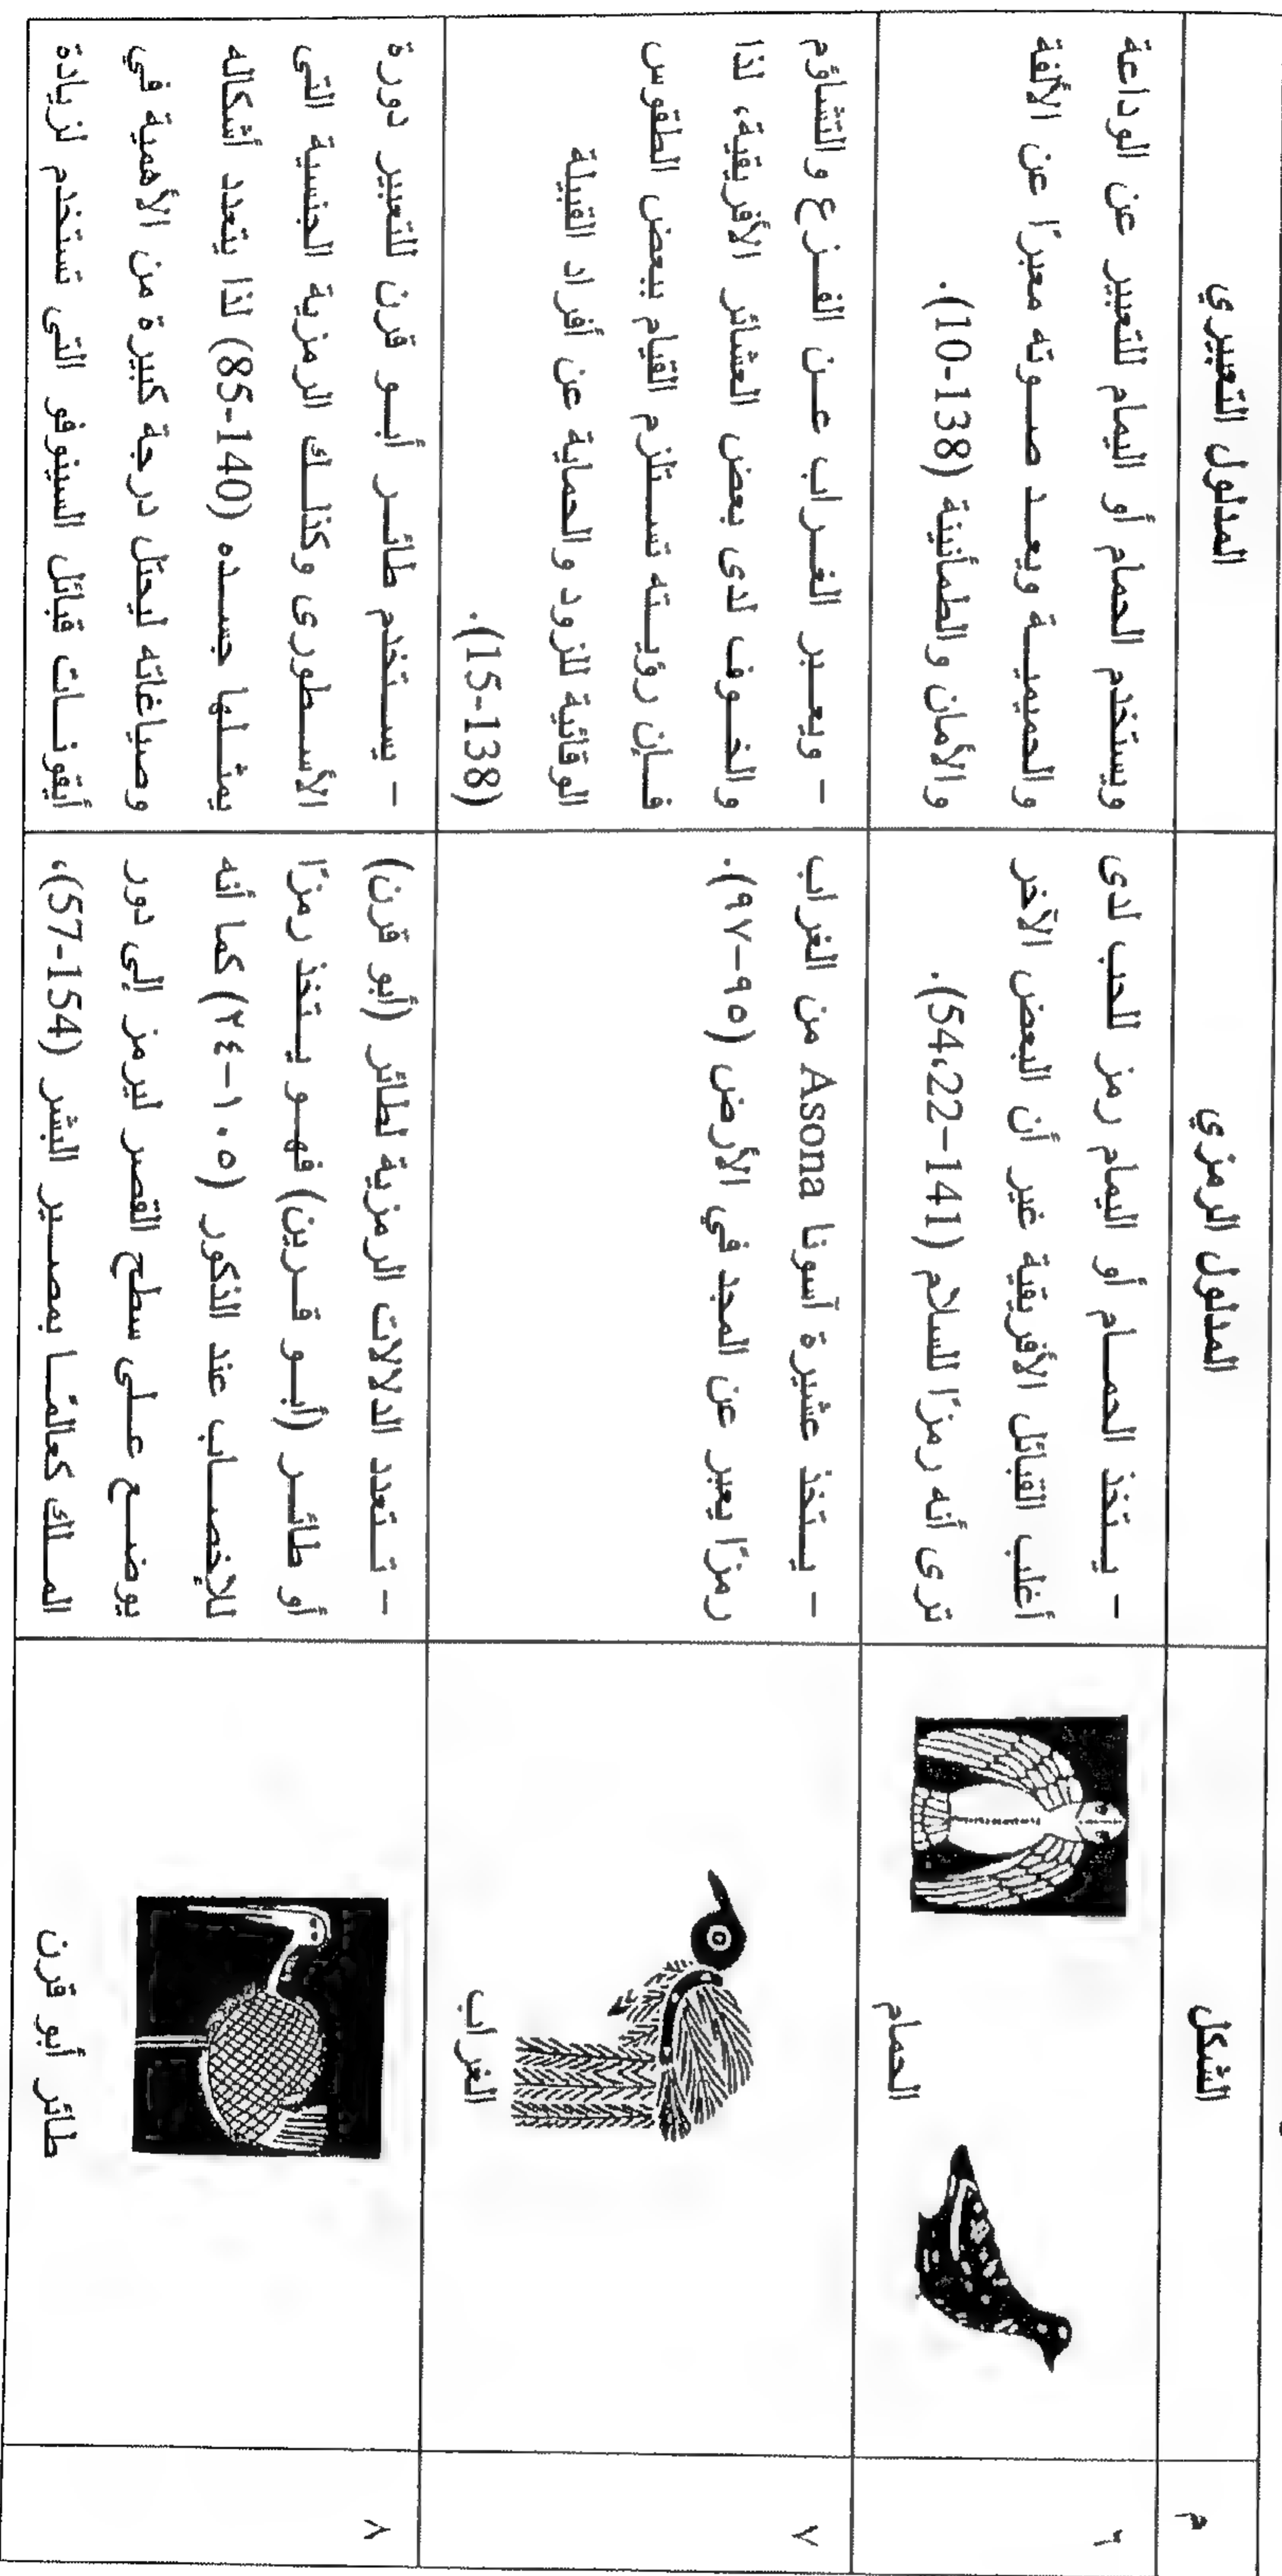 م
الشكل
المدلول الرمزي
المدلول التعبيري
٦
الحمام
- يتخذ الحمام أو اليمام رمز للحب لدى
أغلب القبائل الأفريقية غير أن البعض الآخر
ترى أنه رمزًا للسلام (141-22،54).
ويستخدم الحمام أو اليمام للتعبير عن الوداعة
والحميمية ويعد صوته معبرًا عن الألفة
والأمان والطمأنينة (138-10).
٧
الغراب
- يتخذ عشيرة آسونا Asona من الغراب
رمزًا يعبر عن المجد في الأرض (٩٥-٩٧).
- ويعبر الغراب عن الفزع والتشاؤم
والخوف لدى بعض العشائر الأفريقية، لذا
فإن رؤيته تستلزم القيام ببعض الطقوس
الوقائية للزود والحماية عن أفراد القبيلة
(138-15).
٨
طائر أبو قرن
- تتعدد الدلالات الرمزية لطائر (أبو قرن)
أو طائر (أبو قرين) فهو يتخذ رمزًا
للإخصاب عند الذكور (١٠٥-٢٤) كما أنه
يوضع على سطح القصر ليرمز إلى دور
الملك كعالمًا بمصير البشر (154-57)،
- يستخدم طائر أبو قرن للتعبير دورة
الأسطورى وكذلك الرمزية الجنسية التى
يمثلها جسده (140-85) لذا يتعدد أشكاله
وصياغاته ليحتل درجة كبيرة من الأهمية في
أيقونات قبائل السينوفو التى تستخدم لزيادة